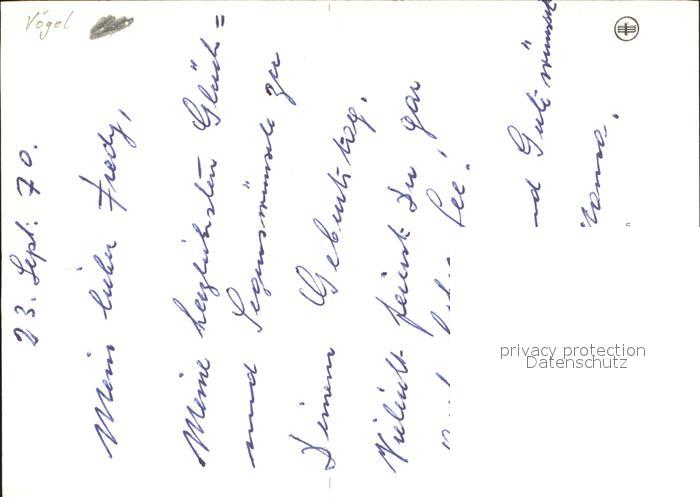 Vögel
23. Sept. 70.
Mein lieber Fredy,
Meine herzlichsten Glück=
und Segenswünsche zu
Deinem Geburtstag.
Vielleicht feierst Du gar
See!
nd Gute wünscht
Mama.
privacy protection
Datenschutz